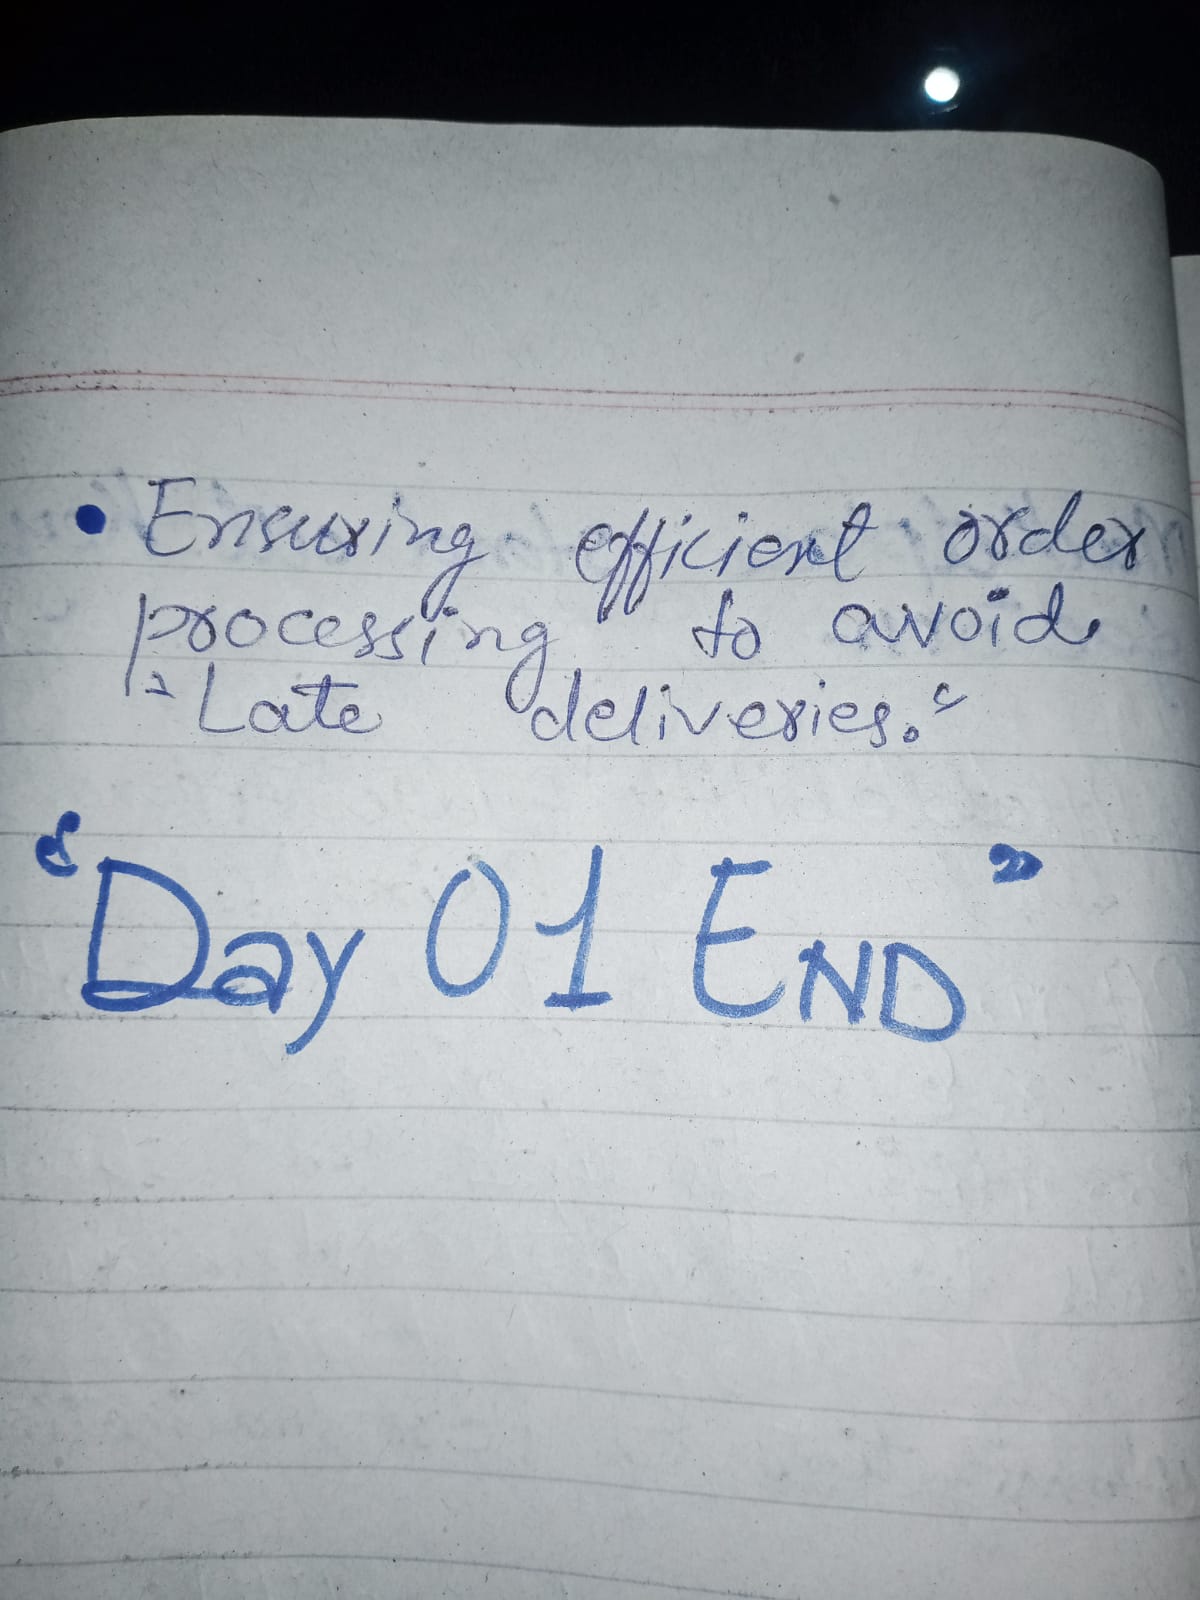 • Ensuring efficient order
processing to avoid
"Late deliveries."
"Day 01 END"